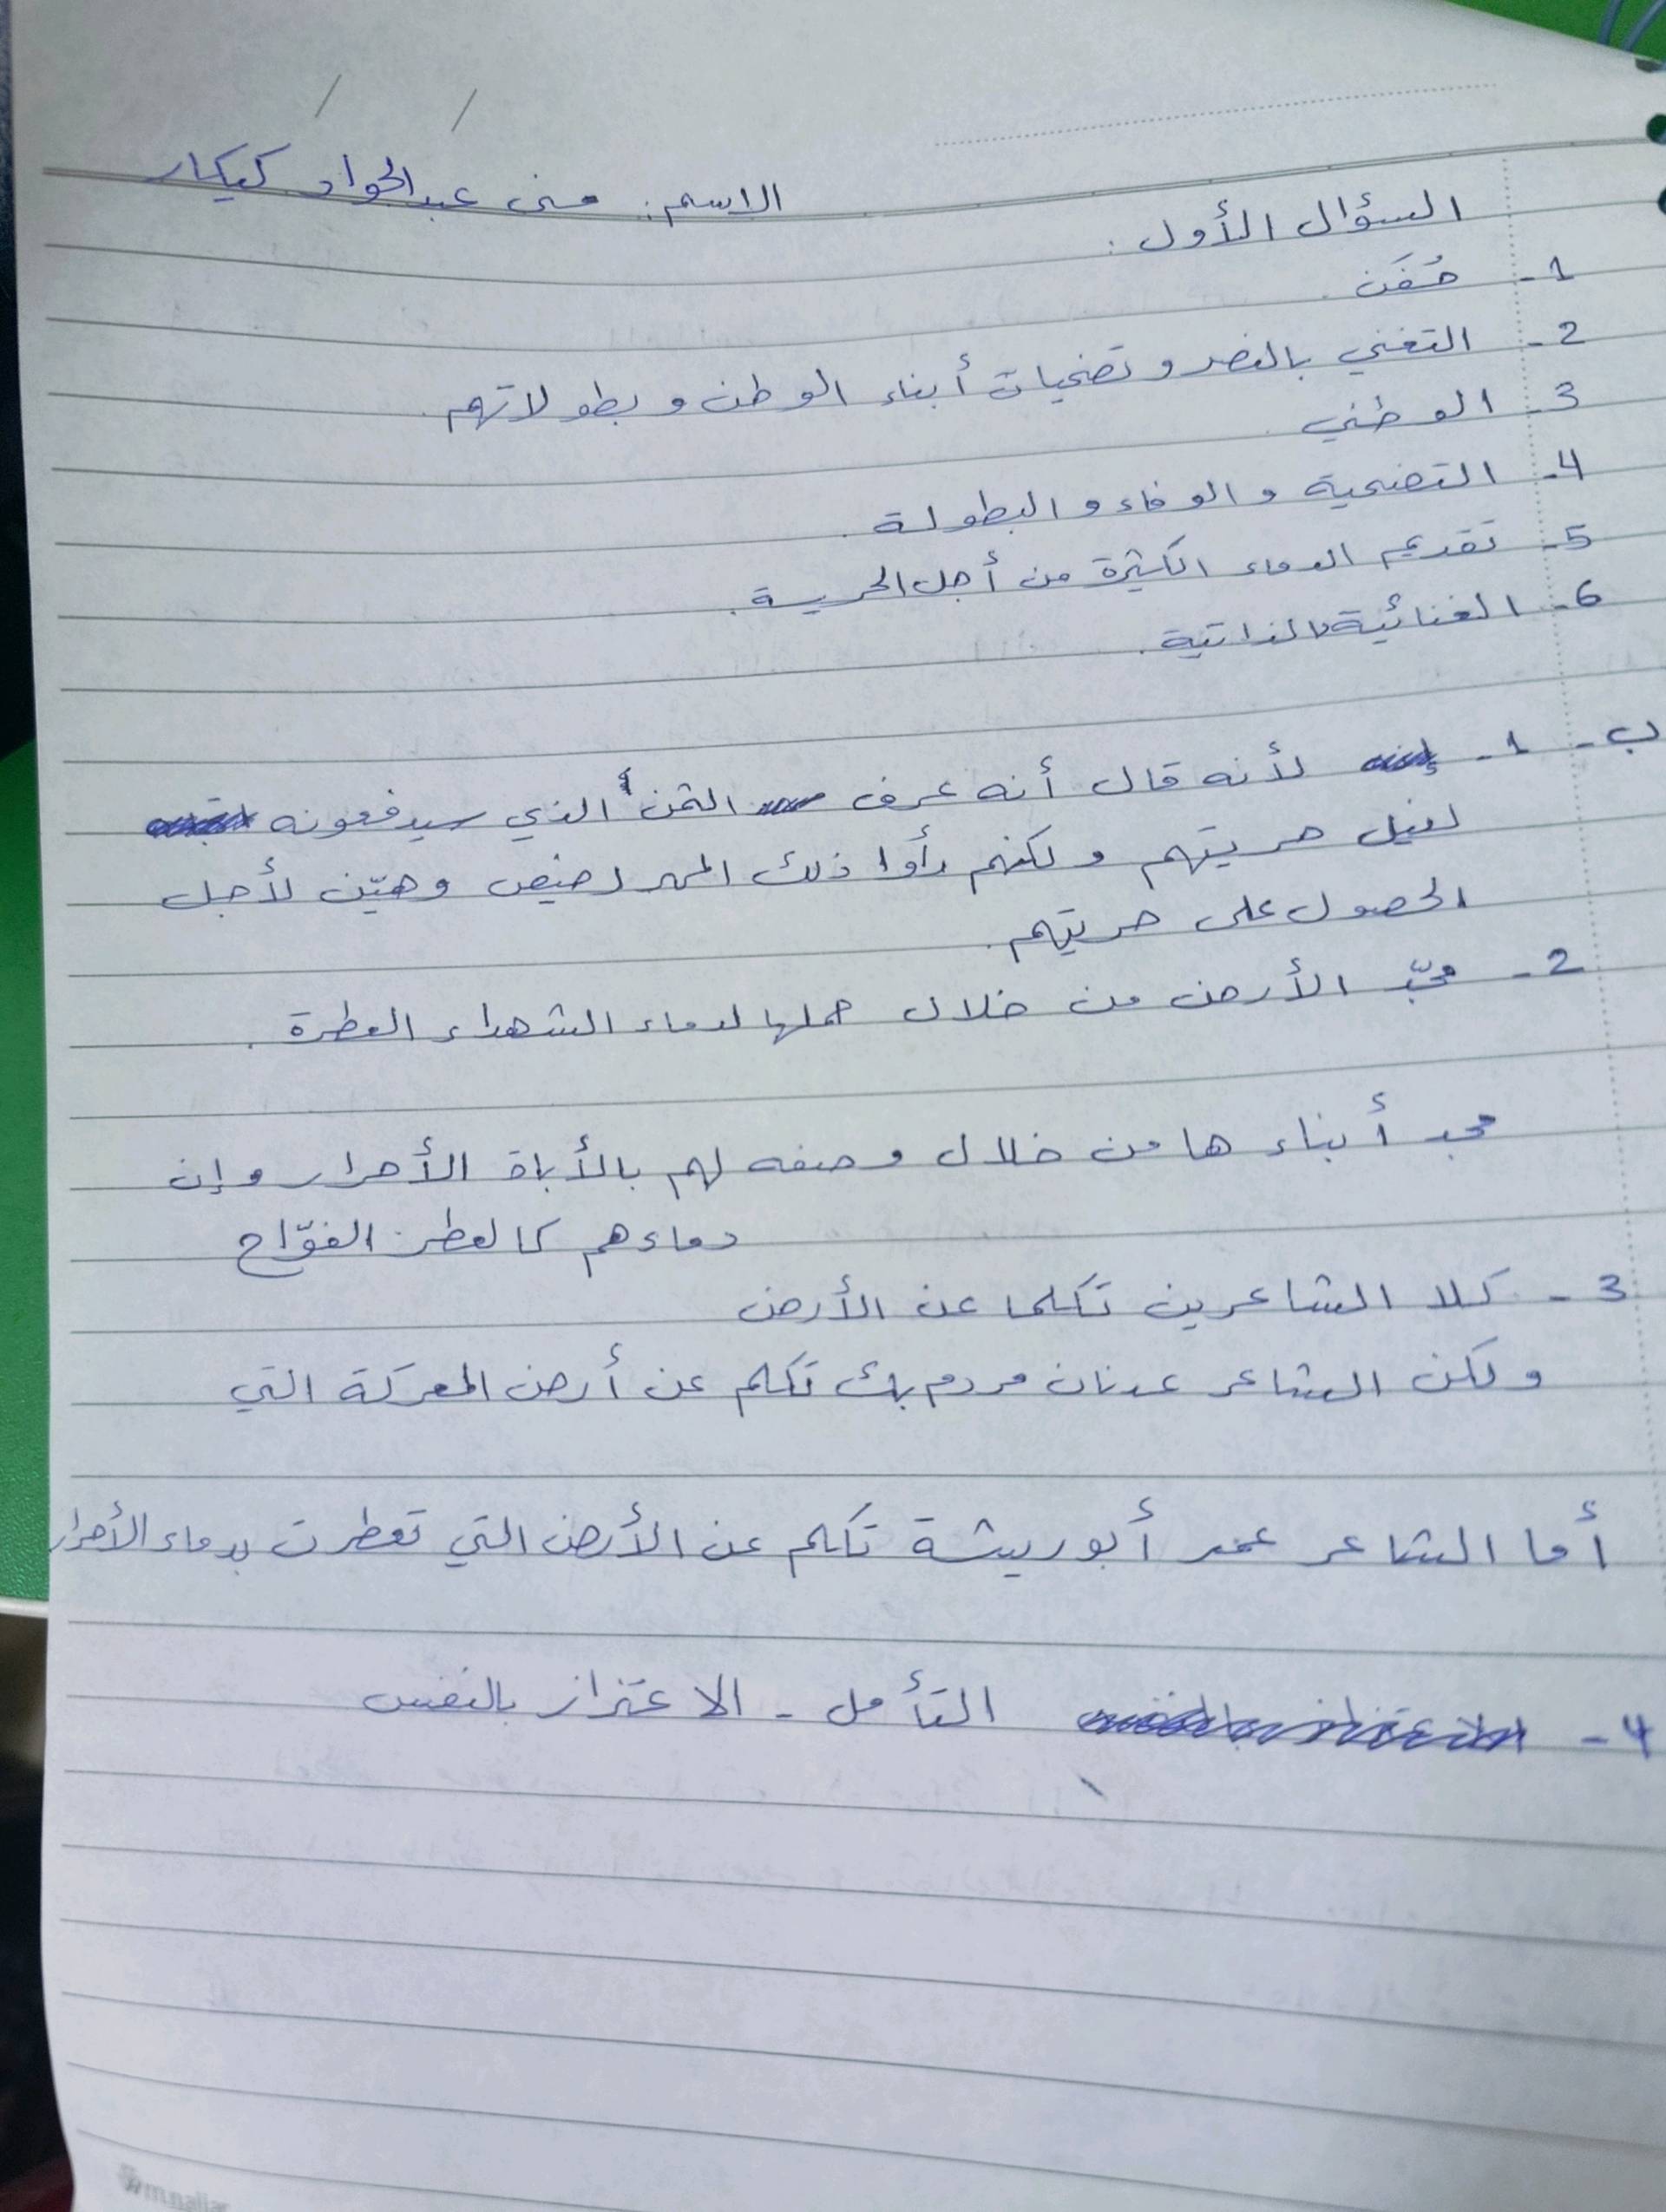 الاسم: منى عبدالجواد كيكار
السؤال الأول:
1- حَفَن
2- التغني بالنصر وتضحيات أبناء الوطن وبطولاتهم.
3- الوطني.
4- التضحية والوفاء والبطولة.
5- تقديم الدماء الكثيرة من أجل الحرية.
6- الغنائية الذاتية.
ب- 1- لأنه قال أنه عرف الثمن الذي سيدفعونه
لنيل حريتهم ولكنهم رأوا ذلك المهر رخيص وهيّن لأجل
الحصول على حريتهم.
2- مجّد الأرض من خلال حملها لدماء الشهداء العطرة.
مجد أبناءها من خلال وصفه لهم بالأباة الأحرار وإن
دماءهم كالعطر الفوّاح
3- كلا الشاعرين تكلما عن الأرض
ولكن الشاعر عدنان مردم بك تكلم عن أرض المعركة التي
أما الشاعر عمر أبو ريشة تكلم عن الأرض التي تعطرت بدماء الأحرار
4- التأمل - الاعتزاز بالنفس